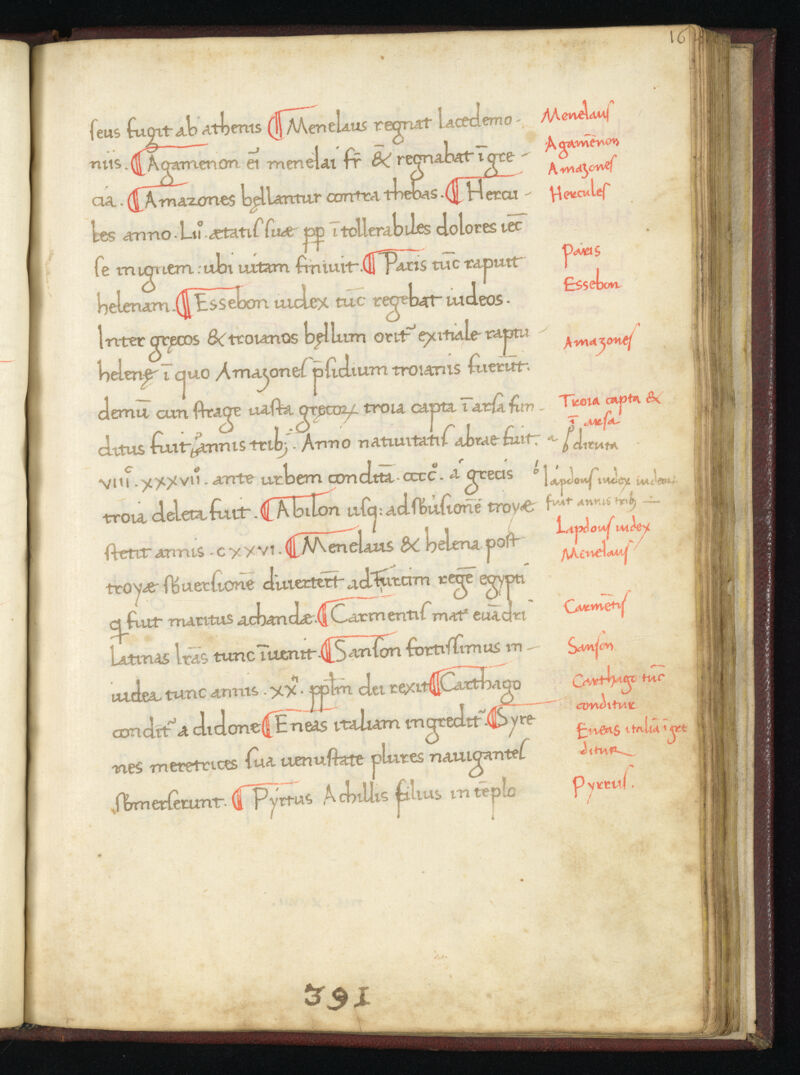 16
seus fugit ab athenis ¶ Menelaus regnat lacedemo-
niis. ¶ Agamenon ei menelai fr̄ & regnabat ī gre-
cia. ¶ Amazones bęllantur contra thebas. ¶ Hercu-
les anno .Lii°. ætatis suæ ꝓp ītollerabiles dolores iec̄
se in ignem: ubi uitam finiuit. ¶ Paris tūc rapuit
helenam. ¶ Essebon iudex tūc regebat iudeos.
Inter gręcos & troianos bęllum orit exitiale raptu
helenę ī quo Amazones p̄sidium troianis fuerūt.
demū cun strage uasta gręcoꝝ troia capta ī arsa fun-
ditus fuit annis trib; Anno natiuitatis abrae fuit.
viii^c.xxxvii°. ante urbem conditā .cccc°. a grecis
troia deleta fuit. ¶ Abilon usq: ad sb̄uersionē troyæ
stetit annis .cxxvi. ¶ Menelaus & helena post
troyæ sb̄uersionē diuertert̄ ad turim regē egypti
q fuit maritus achandæ. ¶ Carmentis mat euādri
Latinas lr̄as tunc īuenit. ¶ Sanson fortissimus in-
iudea tunc annis .xx. pplm̄ dei rexit ¶ Carthago
condit a didone ¶ Eneas italiam ingredit. ¶ Syre
nes meretrices sua uenustate plures nauigantes
sb̄merserunt. ¶ Pyrrus Achillis filius in tēplo
Menelaus
Agamēnon
Amazones
Hercules
Paris
Essebon
Amazones
Troia capta &
ī arsa
diruta
lapdous iudex iudeoꝝ
fuit annis trib;
Lapdous iudex
Menelaus
Carmētis
Sanson
Carthago tūc
conditur
Eneas italiā īgre
ditur
Pyrrus.
391